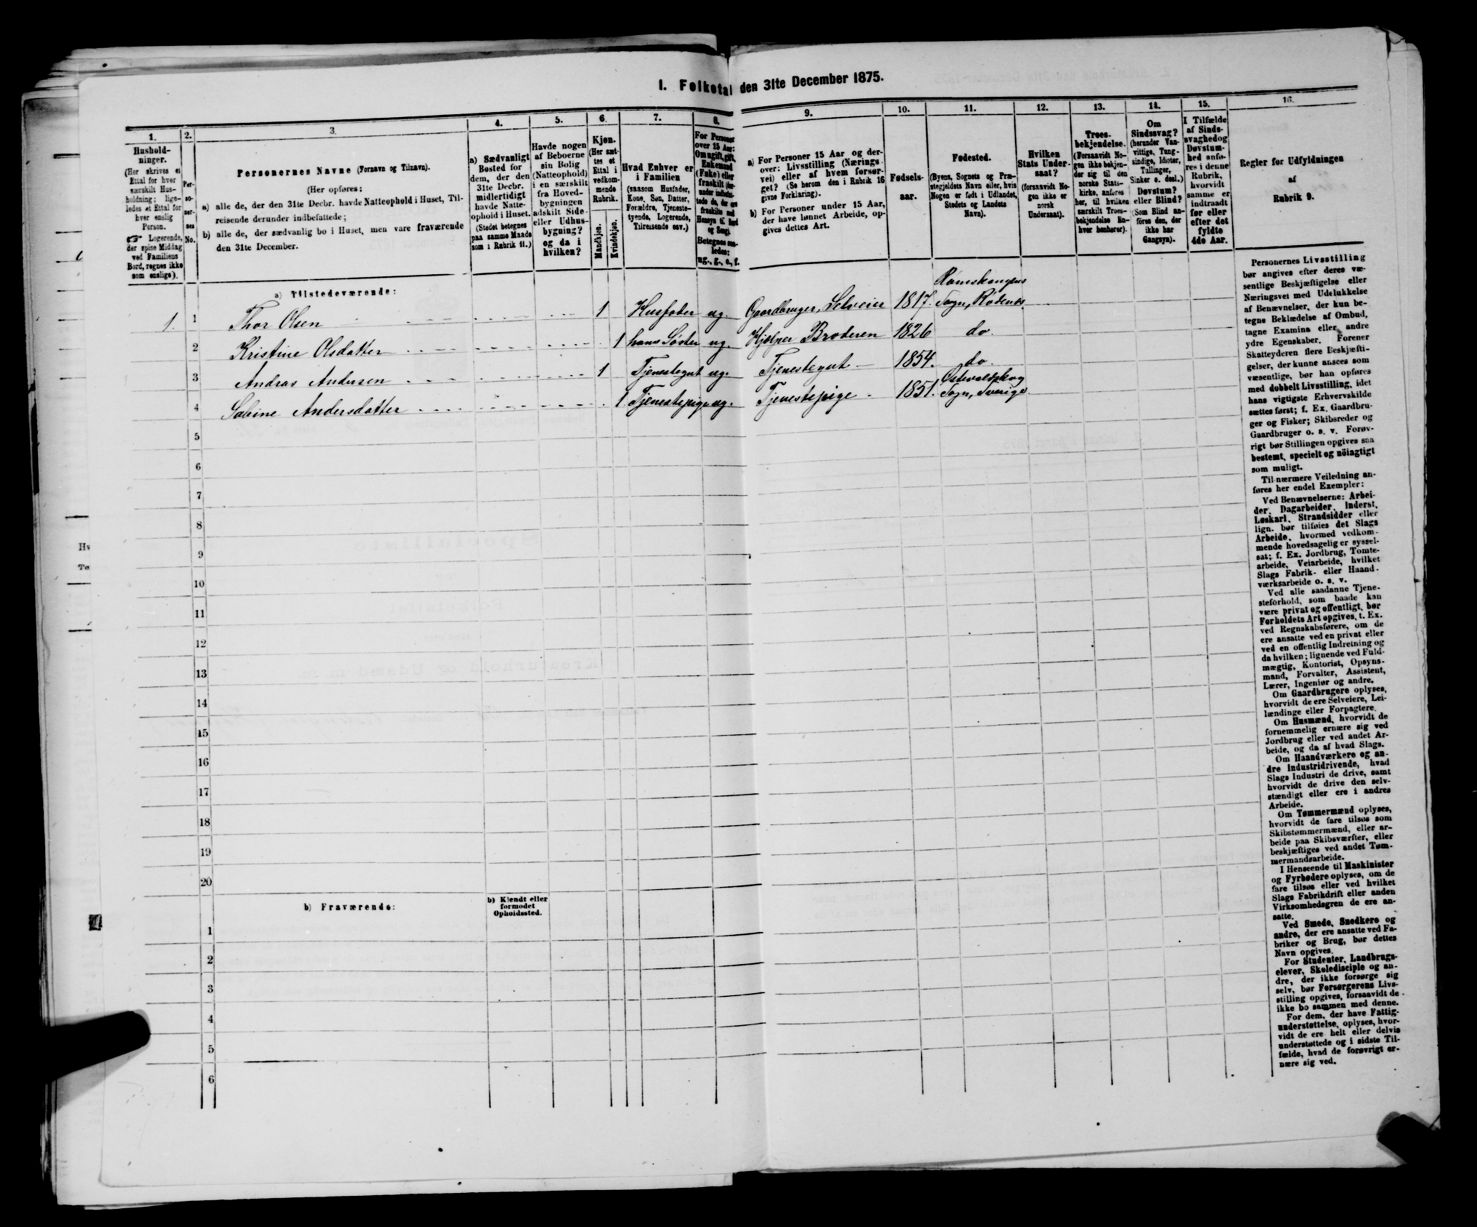 I. Folketal den 31te December 1875.
1. 2. 3. 4. 5. 6. 7. 8. 9. 10. 11. 12. 13. 14. 15. 16.
Hushold-
ninger.
(Her skrives et
Ettal for hver
særskilt Hus-
holdning; lige-
ledes et Ettal for
hver enslig
Person.
☞ Logerende,
der spise Middag
ved Familiens
Bord, regnes ikke
som enslige).
Per-
so-
ner-
nes
No.
Personernes Navne (Fornavn og Tilnavn).
(Her opføres:
a) alle de, der den 31te Decbr. havde Natteophold i Huset, Til-
reisende derunder indbefattede;
b) alle de, der sædvanlig bo i Huset, men vare fraværende
den 31te December.
a) Sædvanligt
Bosted for
dem, der den
31te Decbr.
midlertidigt
havde Natte-
ophold i Huset.
(Stedet betegnes
paa samme Maade
som i Rubrik 11.)
Havde nogen
af Beboerne
sin Bolig
(Natteophold)
i en særskilt
fra Hoved-
bygningen
adskilt Side-
eller Udhus-
bygning?
og da i
hvilken?
Kjøn.
(Her sæt-
tes et
Ettal i
vedkom-
mende
Rubrik.
Mandkjøn.
Kvindekjøn.
Hvad Enhver er
i Familien
(saasom Husfader,
Kone, Søn, Datter,
Forældre, Tjeneste-
tyende, Logerende,
Tilreisende osv.)
For Personer
over 15 Aar:
Om ugift, gift,
Enkemand
(Enke) eller
fraskilt
Betegnes saa-
ledes:
ug., g., e., f.
a) For Personer 15 Aar og der-
over: Livsstilling (Nærings-
vei) eller af hvem forsør-
get? (Se herom den i Rubrik 16
givne Forklaring).
b) For Personer under 15 Aar,
der have lønnet Arbeide, op-
gives dettes Art.
Fødsels-
aar.
Fødested.
(Byens, Sognets og Præ-
stegjeldets Navn eller, hvis
Nogen er født i Udlandet,
Stedets og Landets
Navn).
Hvilken
Stats Under-
saat?
(forsaavidt No-
gen ikke er
norsk
Undersaat).
Troes-
bekjendelse.
(Forsaavidt No-
gen ikke bekjen-
der sig til den
norske Stats-
kirke, anføres
her, til hvilken
særskilt Troes-
bekjendelse En-
hver henhører).
Om
Sindssvag?
(herunder Van-
vittige, Tung-
sindige, Idioter,
Tullinger,
Sinker o. desl.)
Døvstum?
eller Blind?
(Som Blind an-
føres den, der
ikke har
Gangsyn).
I Tilfælde
af Sinds-
svaghed og
Døvstum-
hed anfø-
res i denne
Rubrik,
hvorvidt
samme er
indtraadt
før eller
efter det
fyldte
4de Aar.
Regler for Udfyldningen
af
Rubrik 9.
a) Tilstedeværende:
1. 1 Thor Olsen 1 Husfader ug. Gaardbruger, Selveier 1817. Rømskougens Sogn, Rødenes
2 Kristine Olsdatter 1 hans Søster ug. Hjælper Broderen 1826 do
3 Andras Andersen 1 Tjenestegut ug. Tjenestegut 1854. do
4 Sabine Andersdatter 1 Tjenestepige ug. Tjenestepige 1851. Østervalskog Sogn, Sverige
5
6
7
8
9
10
11
12
13
14
15
16
17
18
19
20
b) Fraværende:
b) Kjendt eller
formodet
Opholdssted.
1
2
3
4
5
6
Personernes Livsstilling
bør angives efter deres væ-
sentlige Beskjæftigelse eller
Næringsvei med Udelukkelse
af Benævnelser, der kun be-
tegne Beklædelse af Ombud,
tagne Examina eller andre
ydre Egenskaber. Forener
Skatteyderen flere Beskjæfti-
gelser, der kunne ansees som
væsentlige, bør han opføres
med dobbelt Livsstilling, idet
hans vigtigste Erhvervskilde
sættes først; f. Ex. Gaardbru-
ger og Fisker; Skibsreder og
Gaardbruger o. s. v. Forøv-
rigt bør Stillingen opgives saa
bestemt, specielt og nøiagtigt
som muligt.
Til nærmere Veiledning an-
føres her endel Exempler:
Ved Benævnelserne: Arbei-
der, Dagarbeider, Inderst,
Løskarl, Strandsidder eller
lign. bør tilføies det Slags
Arbeide, hvormed vedkom-
mende hovedsagelig er syssel-
sat; f. Ex. Jordbrug, Tomte-
arbeide, Veiarbeide, hvilket
Slags Fabrik- eller Haand-
værksarbeide o. s. v.
Ved alle saadanne Tjene-
steforhold, som baade kan
være privat og offentligt, bør
Forholdets Art opgives, t. Ex.
ved Regnskabsførere, om de
ere ansatte ved en privat eller
ved en offentlig Indretning og
da hvilken; lignende ved Fuld-
mægtig, Kontorist, Opsyns-
mand, Forvalter, Assistent,
Lærer, Ingeniør og andre.
Om Gaardbrugere oplyses,
hvorvidt de ere Selveiere, Lei-
lændinge eller Forpagtere.
Om Husmænd, hvorvidt de
fornemmelig ernære sig ved
Jordbrug eller ved andet Ar-
beide, og da af hvad Slags.
Om Haandværkere og an-
dre Industridrivende, hvad
Slags Industri de drive, samt
hvorvidt de drive den selv-
stændigt eller ere i andres
Arbeide.
Om Tømmermænd oplyses,
hvorvidt de fare tilsøs som
Skibstømmermænd, eller ar-
beide paa Skibsværfter, eller
beskjæftiges ved andet Tøm-
mermandsarbeide.
I Henseende til Maskinister
og Fyrbødere oplyses, om de
fare tilsøs eller ved hvilket
Slags Fabrikdrift eller anden
Virksomhedsgren de ere an-
satte.
Ved Smede, Snedkere og
andre, der ere ansatte ved Fa-
briker og Brug, bør dettes
Navn opgives.
For Studenter, Landbrugs-
elever, Skoledisciple og an-
dre, der ikke forsørge sig
selv, bør Forsørgerens Livs-
stilling opgives, forsaavidt de
ikke bo sammen med denne.
For dem, der have Fattig-
understøttelse, oplyses, hvor-
vidt de ere helt eller delvis
understøttede og i sidste Til-
fælde, hvad de forøvrigt er-
nære sig ved.